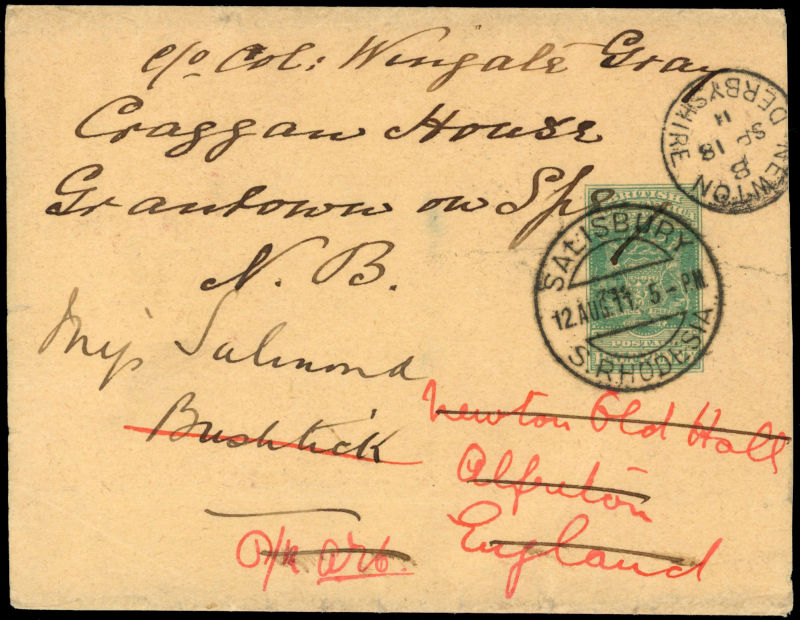 c/o Col: Wingate Gray
Craggan House
Grantown on Spey
N. B.
NEWTON
DERBYSHIRE
8
SP 18
11
BRITISH
SALISBURY
12 AUG 11. 5-PM
S. RHODESIA.
POSTA
Miss Salmond
Bushtick
Newton Old Hall
Alfreton
England